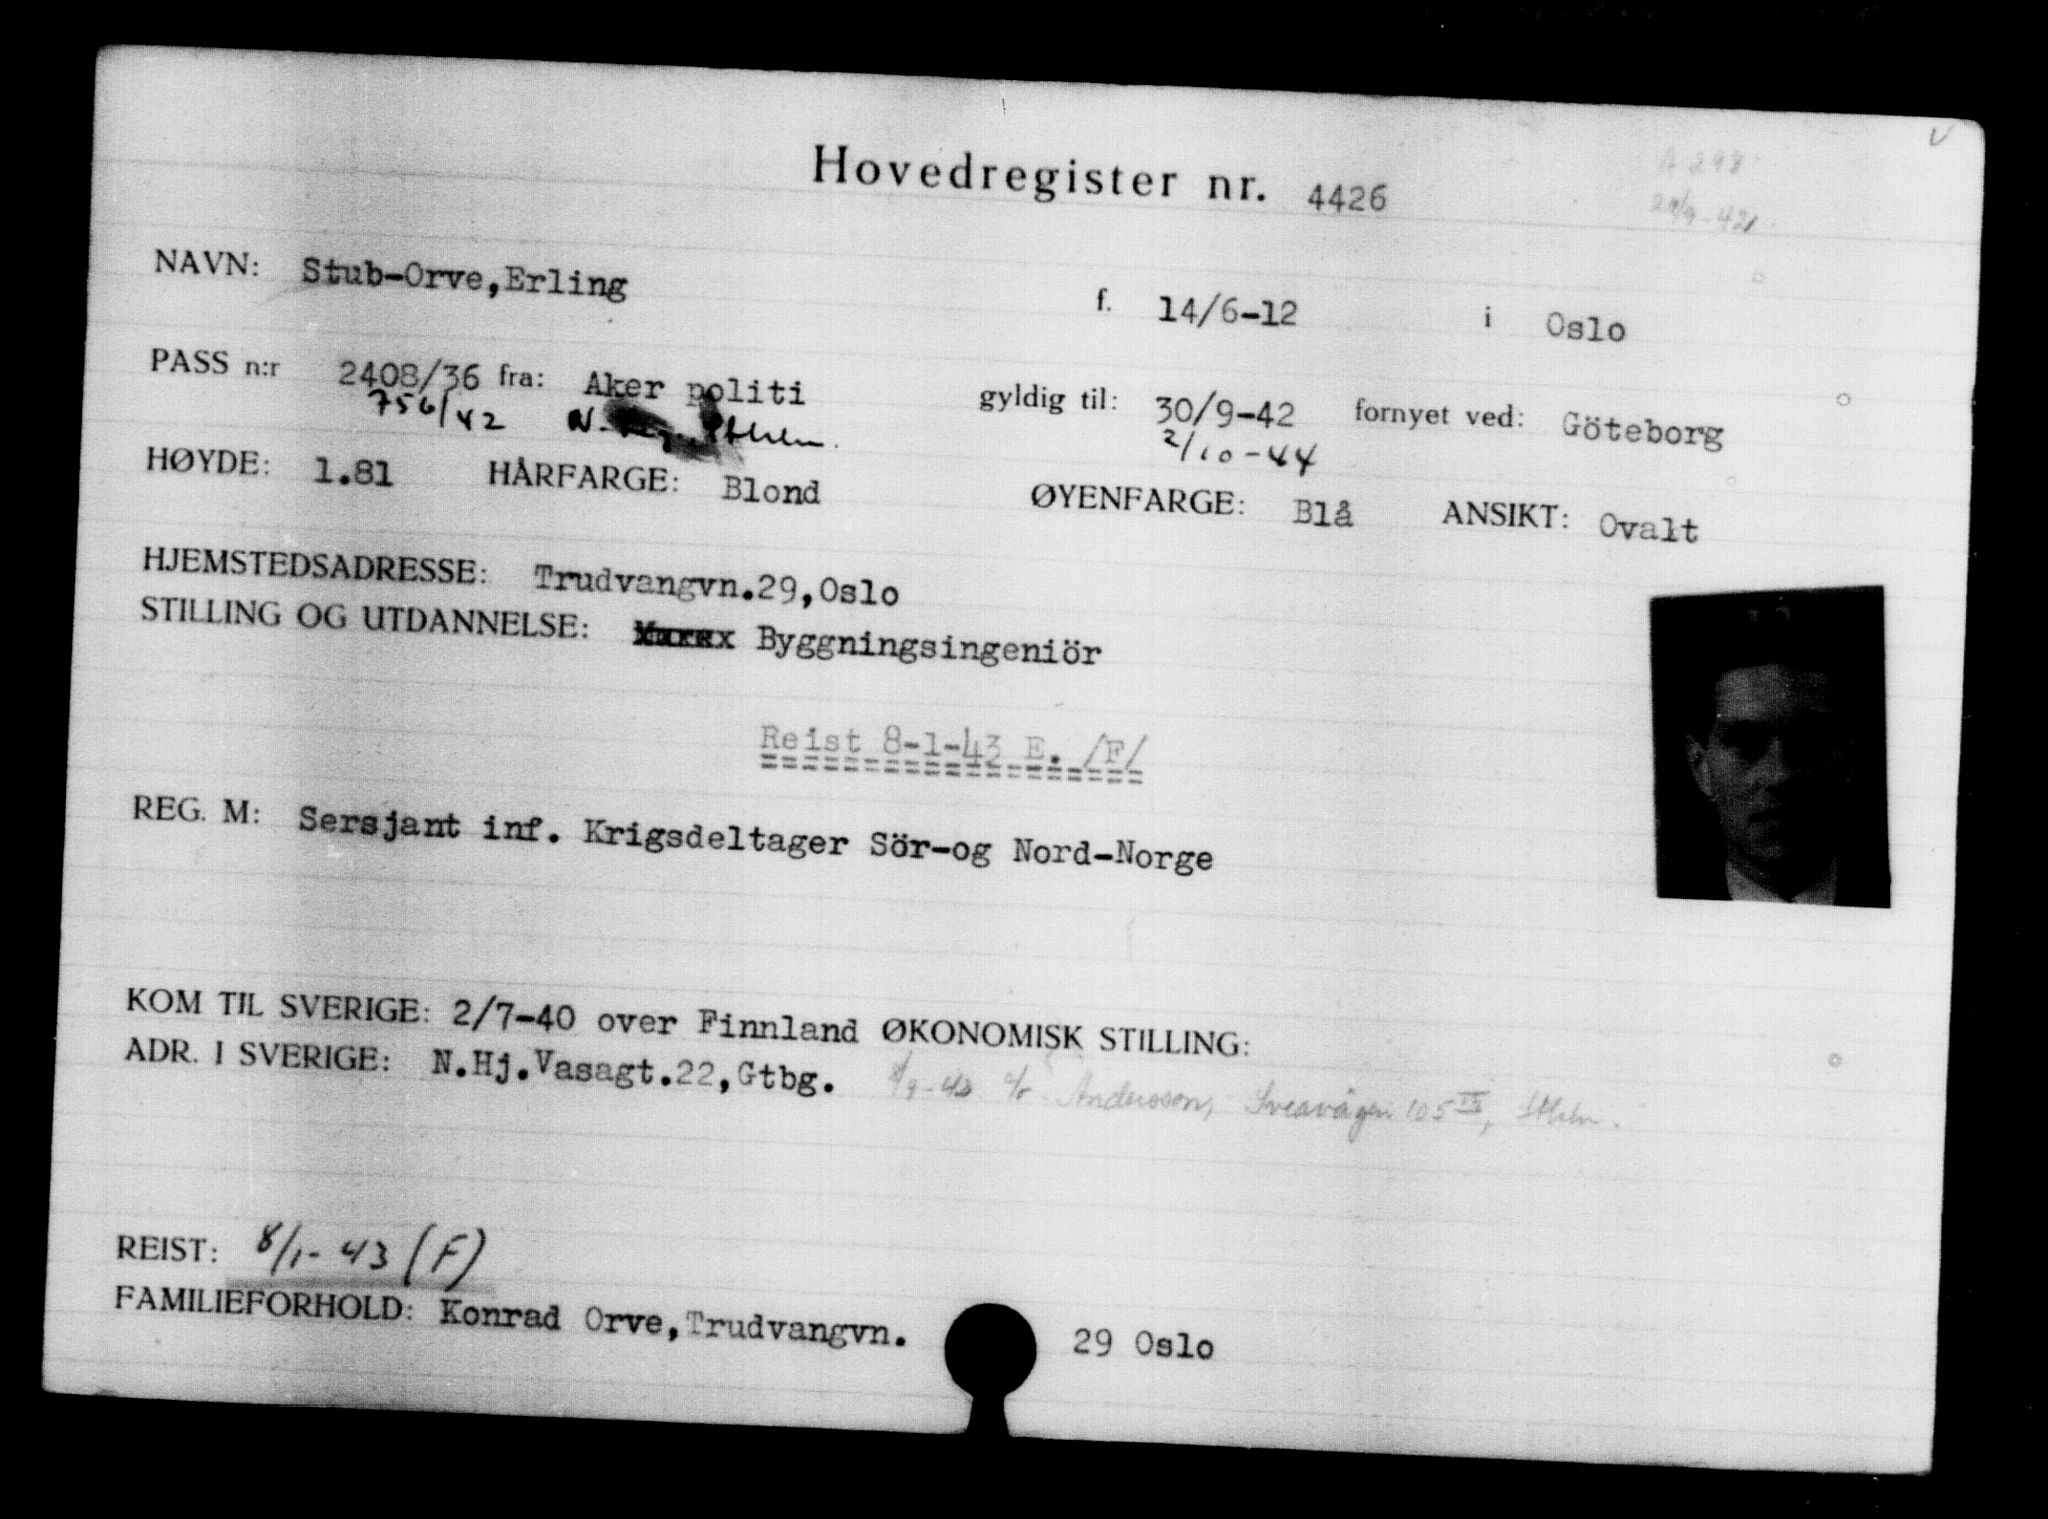 Hovedregister nr. 4426
A 298
29/9-42
NAVN: Stub-Orve,Erling f. 14/6-12 i Oslo
PASS n:r 2408/36 fra: Aker politi gyldig til: 30/9-42 fornyet ved: Göteborg
756/42 N. Sthlm. 2/10-44
HØYDE: 1.81 HÅRFARGE: Blond ØYENFARGE: Blå ANSIKT: Ovalt
HJEMSTEDSADRESSE: Trudvangvn.29,Oslo
STILLING OG UTDANNELSE: Byggningsingeniör
Reist 8-1-43 E. /F/
REG. M: Sersjant inf. Krigsdeltager Sör-og Nord-Norge
KOM TIL SVERIGE: 2/7-40 over Finnland ØKONOMISK STILLING:
ADR. I SVERIGE: N.Hj.Vasagt.22,Gtbg. c/o Andersson, Sveavägen 105 Sthlm.
REIST: 8/1-43 (F)
FAMILIEFORHOLD: Konrad Orve,Trudvangvn. 29 Oslo